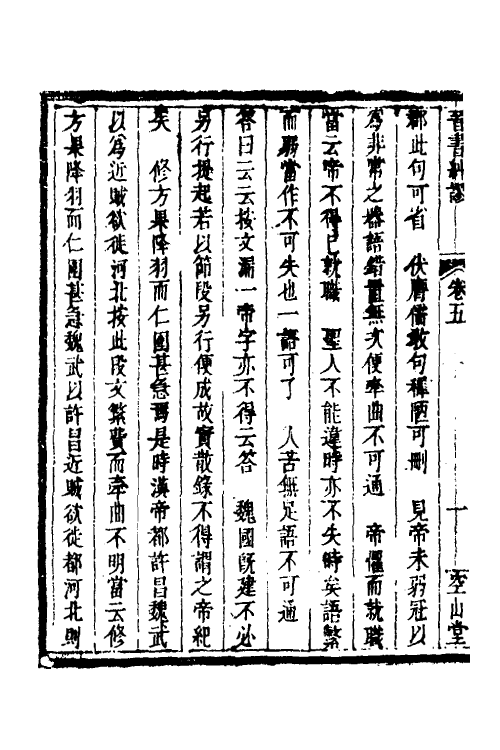 晉書糾謬 卷五 一 空山堂
郡此句可省 伏膺儒敎句穉陋可刪 見帝未弱冠以
為非常之器語錯置無次便牽曲不可通 帝懼而就職
當云帝不得已就職 聖人不能違時亦不失時矣語繁
而弱當作不可失也一語可了 人苦無足語不可通
答曰云云按文漏一帝字亦不得云答 魏國旣建不必
另行提起若以節段另行便成故實散錄不得謂之帝紀
矣 修方果降羽而仁圍甚急焉是時漢帝都許昌魏武
以為近賊欲徙河北按此段文繁費而牽曲不明當云修
方果降羽而仁圍甚急魏武以許昌近賊欲徙都河北則